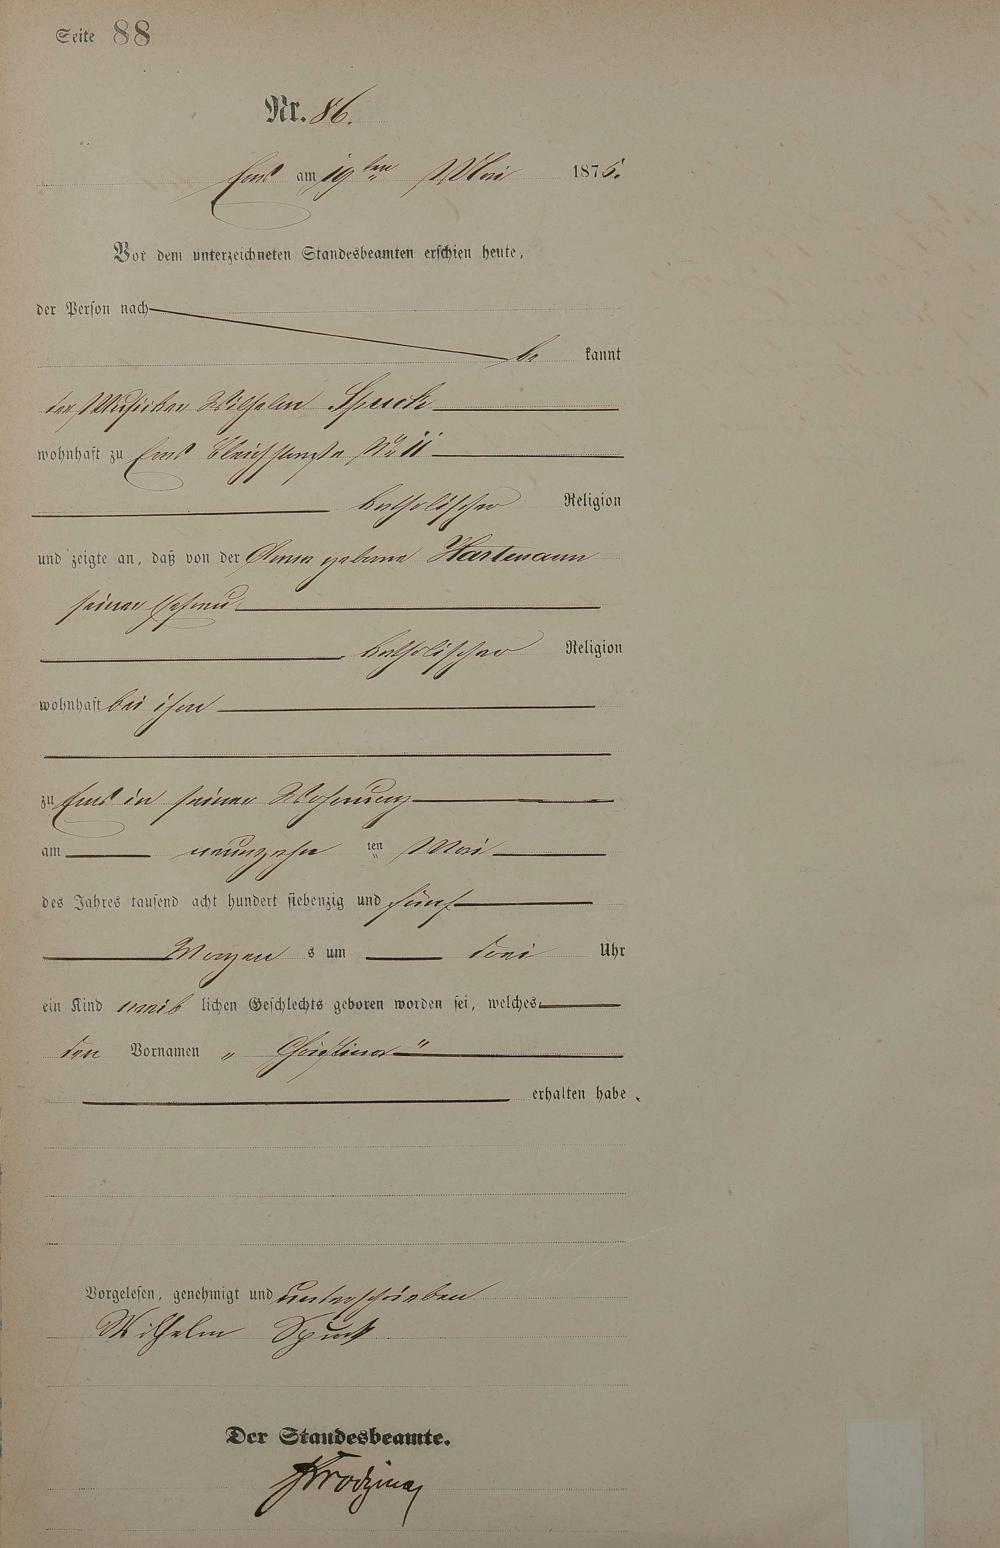 Seite 88
Nr. 86.
Ems am 19ten Mai 1875.
Vor dem unterzeichneten Standesbeamten erschien heute,
der Person nach
be kannt
der Musiker Wilhelm
wohnhaft zu Ems Bleichstraße No 11
katholischer Religion
und zeigte an, daß von der Anna geborene Hartmann
seiner Ehefrau
katholischer Religion
wohnhaft bei ihm
zu Ems in seiner Wohnung
am neunzehn ten Mai
des Jahres tausend acht hundert siebenzig und fünf
Morgen s um drei Uhr
ein Kind weib lichen Geschlechts geboren worden sei, welches
den Vornamen „ Christina “
erhalten habe.
Vorgelesen, genehmigt und unterschrieben
Wilhelm
Der Standesbeamte.